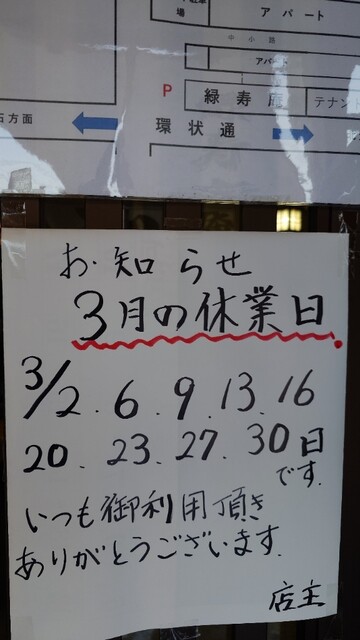 場
アパート
中小路
アパート
P
緑寿庵
テナン
方面
環状通
お知らせ
3月の休業日
3/2.6.9.13.16
20.23.27.30日
です.
いつも御利用頂き
ありがとうございます.
店主